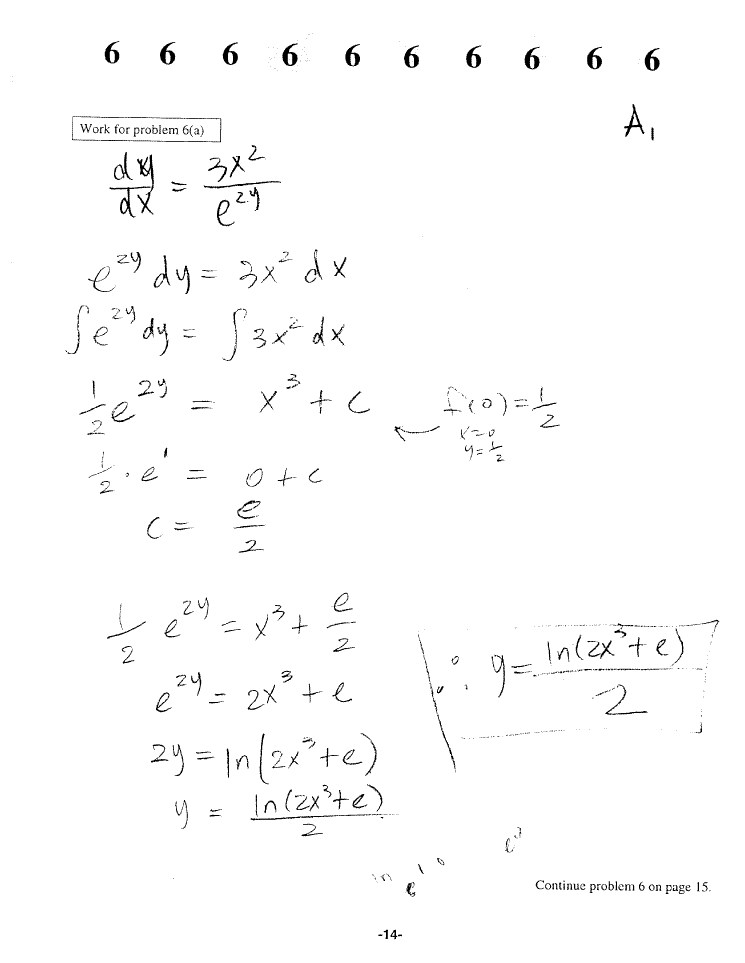 6 6 6 6 6 6 6 6 6 6
Work for problem 6(a)
A₁
dy/dx = 3x²/e^{2y}
e^{2y} dy = 3x² dx
∫e^{2y} dy = ∫3x² dx
1/2 e^{2y} = x³ + C
f(0) = 1/2
x=0
y=1/2
1/2 · e¹ = 0 + C
C = e/2
1/2 e^{2y} = x³ + e/2
e^{2y} = 2x³ + e
2y = ln(2x³+e)
y = ln(2x³+e)/2
∴ y = ln(2x³+e)/2
ln e
Continue problem 6 on page 15.
-14-